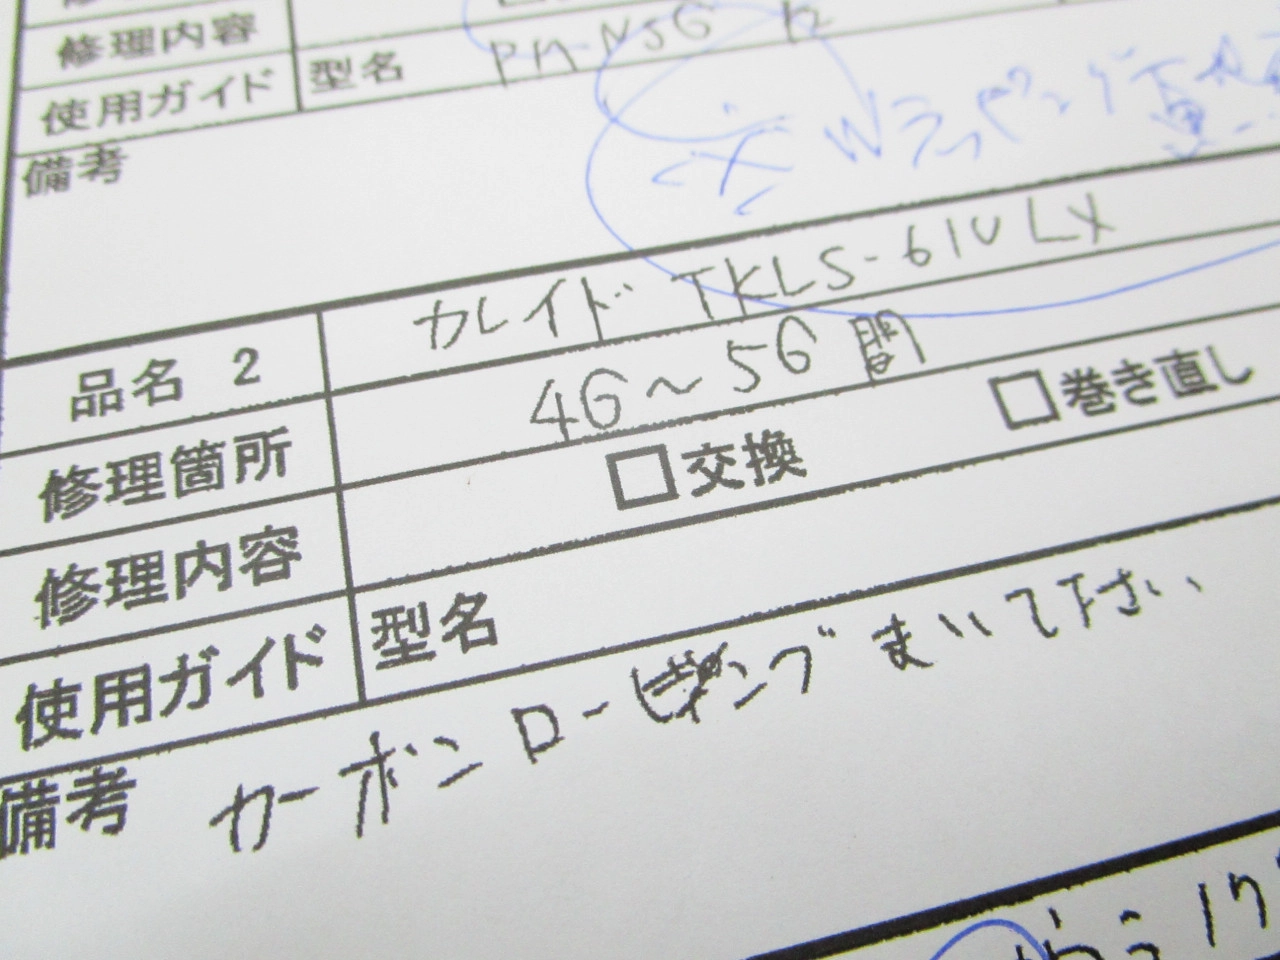 修理内容
使用ガイド 型名 PM-NSG
備考
Wラッピング
品名 2 カレイド TKLS-61ULX
修理箇所 4G~5G間
修理内容 □交換 □巻き直し
使用ガイド 型名
備考 カーボンロービング まいて下さい